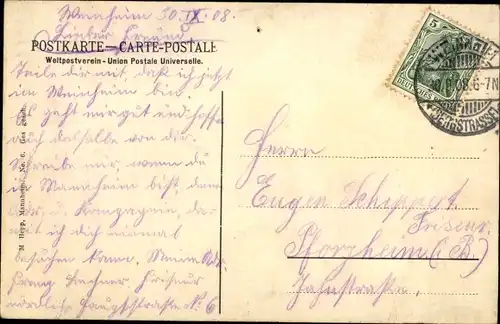 Weinheim 30.IX.08.
Lieber Freund
POSTKARTE — CARTE-POSTALE
Weltpostverein - Union Postale Universelle.
Teile dir mit, daß ich jetzt
im Weinheim bin.
Es geht mir gut und hoffe
auch dasselbe von dir.
Schreibe mir, wenn du
in Mannheim bist, dann
u. Kompagnie, da
mit ich dich einmal
besuchen kann. Meine Adr.
Franz Lechner Friseur
nördliche Hauptschtraße No 6
M. Hepp, Mannheim, No. 6. Ges. gesch.
5
WEINHEIM
08.6-7N
(BERGSTRASSE)
Herrn
Eugen Schippert
Friseur
Pforzheim (B)
Jahnstraße,